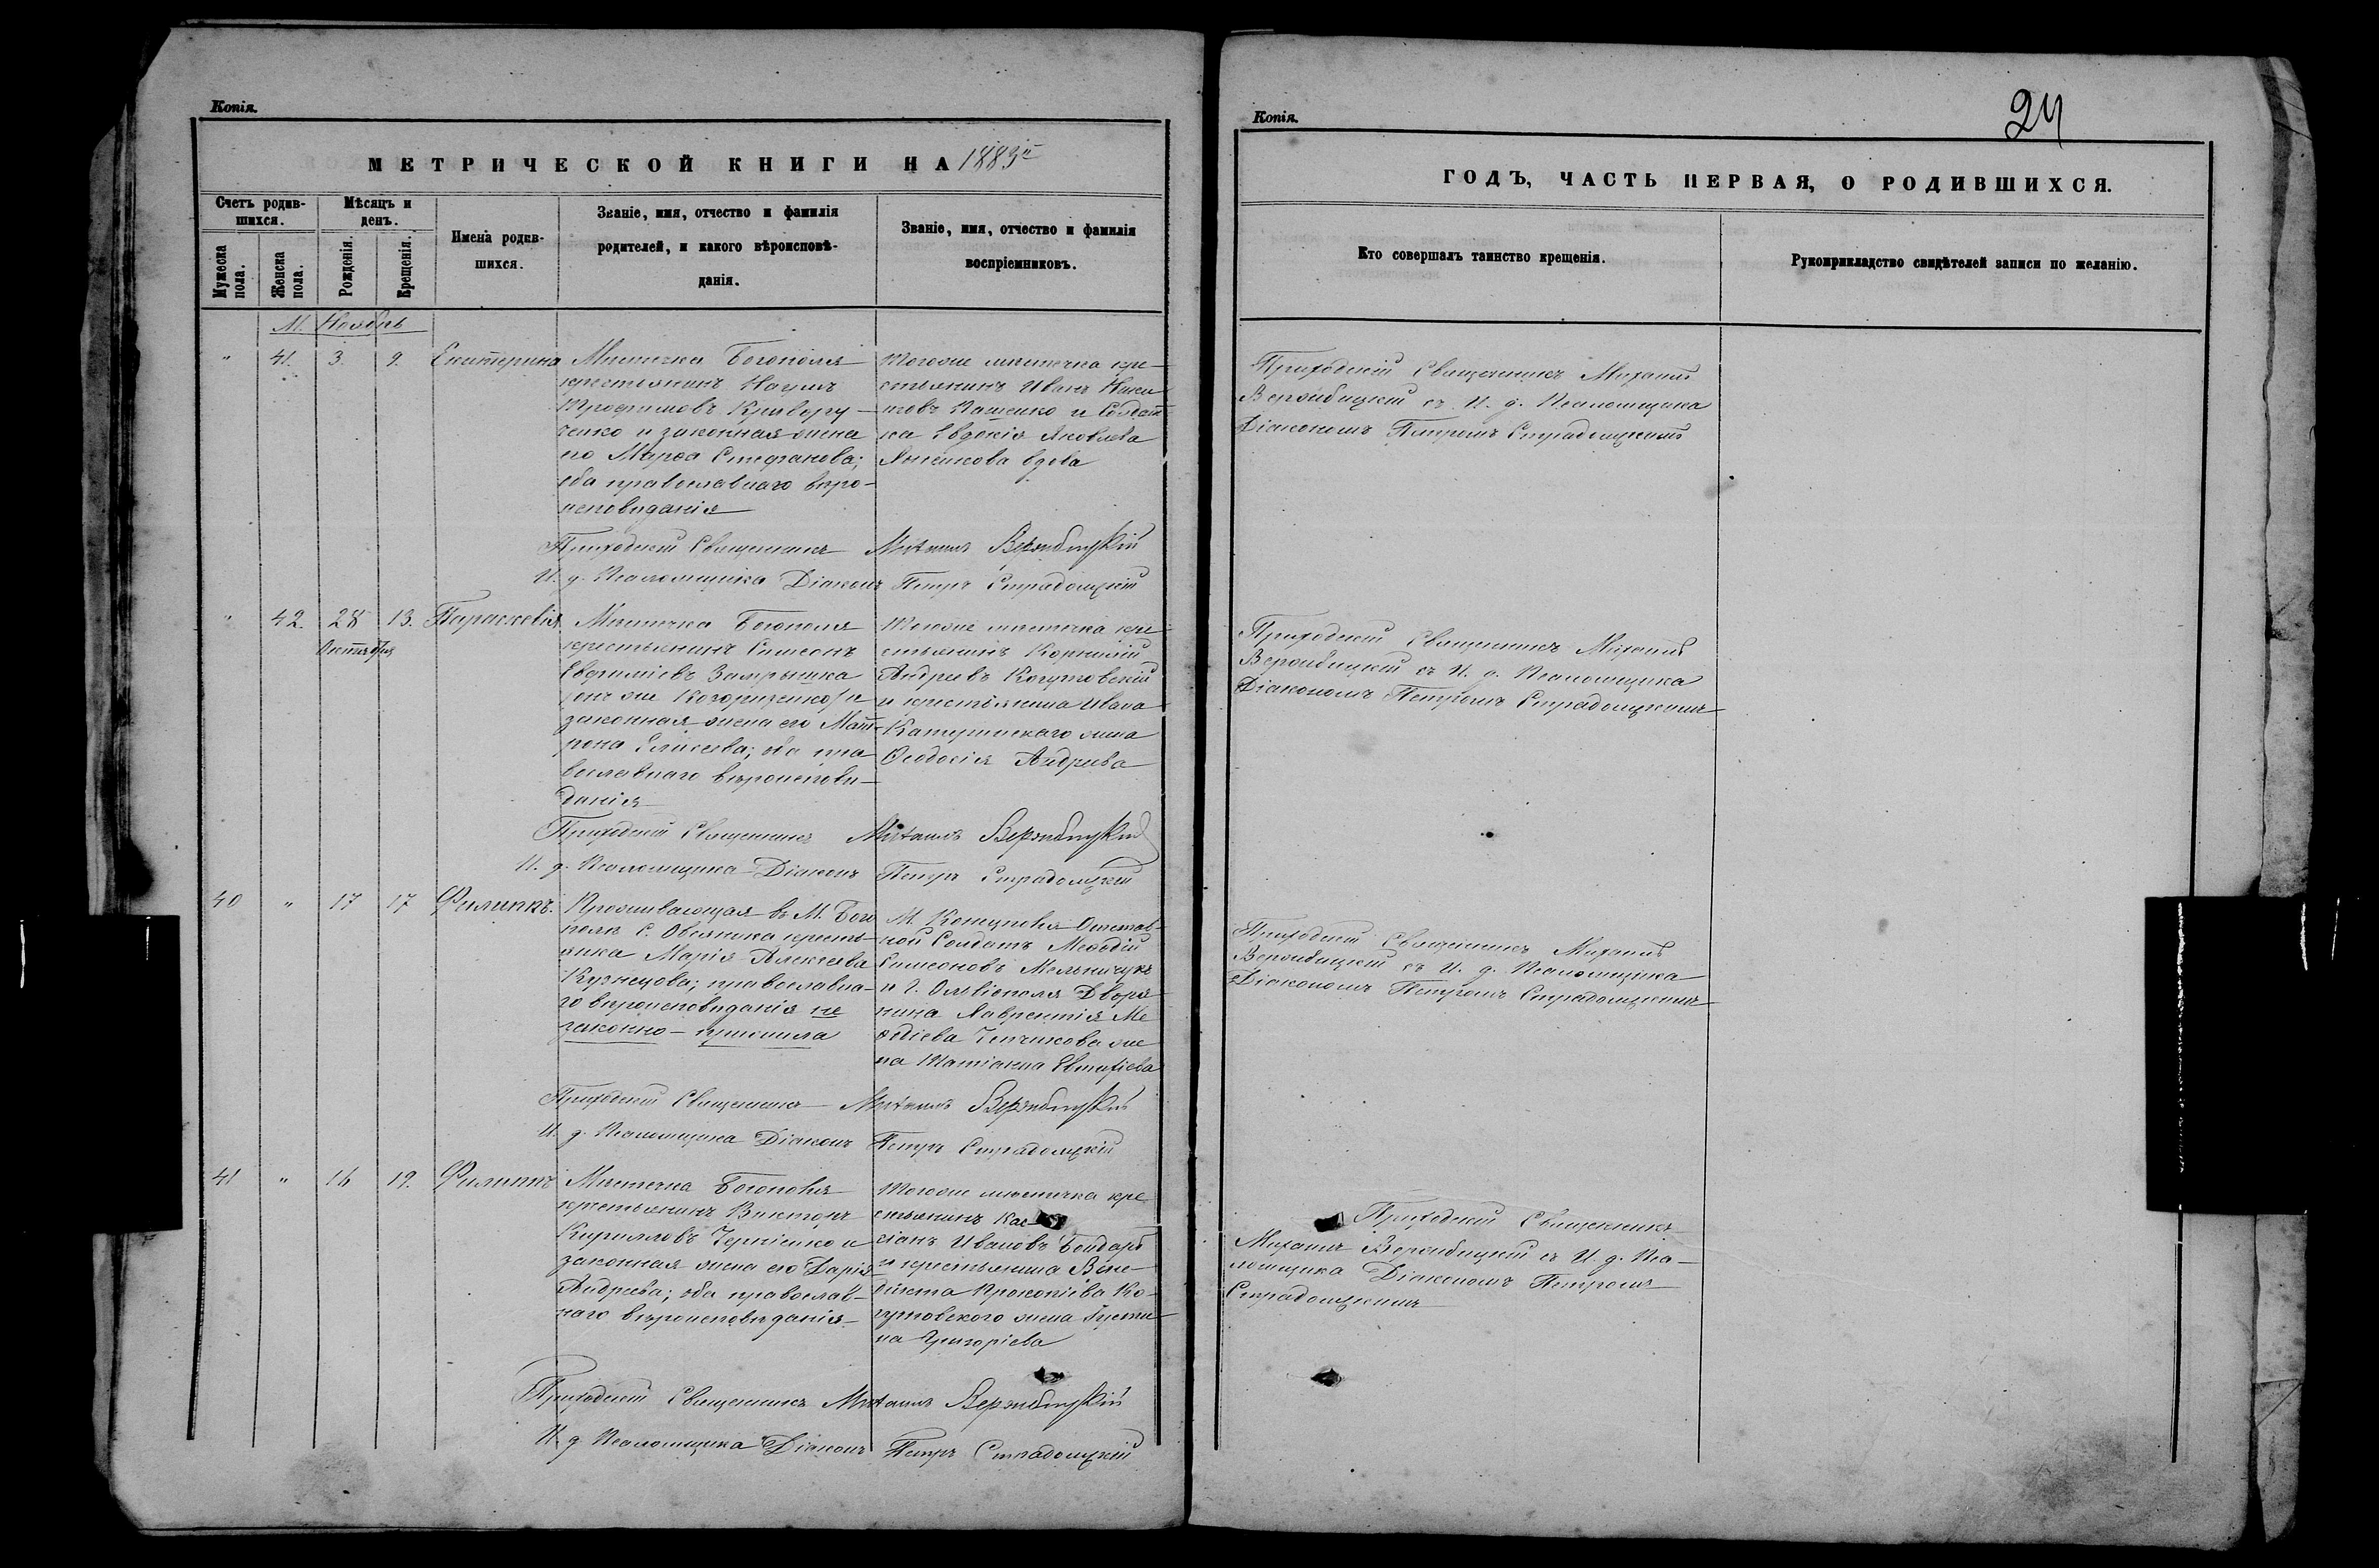 Копія.
МЕТРИЧЕСКОЙ КНИГИ НА 1883й
Счетъ родив-
шихся.
Мѣсяцъ и
день.
Имена родив-
шихся.
Званіе, имя, отчество и фамилія
родителей, и какого вѣроисповѣ-
данія.
Званіе, имя, отчество и фамилія
воспріемниковъ.
Мужеска
пола.
Женска
пола.
Рожденія.
Крещенія.
М. Ноябрь
" 41. 3. 9. Екатерина
Мѣстечка Богополя
крестьянинъ Наумъ
Трофимовъ Кривору-
ченко и законная жена
его Марѳа Стефанова;
оба православнаго вѣро-
исповѣданія
Тогоже мѣстечка кре-
стьянинъ Иванъ
Пашенко и Солдат-
ка Евдокія Яковлева
вдова
Приходскій Священникъ Михаилъ Вержбицкій
И. д. Псаломщика Діаконъ Петръ Страдомскій
" 42. 28 13. Параскевія
Октября
Мѣстечка Богополя
крестьянинъ Симеонъ
Евфиміевъ
онъ же и
законная жена его Мат-
рона Елисеева; оба пра
вославнаго вѣроисповѣ-
данія
Тогоже мѣстечка кре-
стьянинъ Корнилій
Андреевъ Когутовскій
и крестьянина Ивана
жена
Ѳеодосія Андреева
Приходскій Священникъ Михаилъ Вержбицкій
И. д. Псаломщика Діаконъ Петръ Страдомскій
40 " 17 17 Филиппъ.
Проживающая въ М. Бого
полѣ С. кресть-
янка Марія Алексѣева
Кузнецова; православна-
го вѣроисповѣданія не
законно-прижила
М. Отстав-
ной Солдатъ Меѳодій
Симеоновъ Мельничукъ
и Г. Ольвіополя Дворя-
нина Лаврентія Ме
ѳодіева же
на Татіана Евтихіева
Приходскій Священникъ Михаилъ Вержбицкій
И. д. Псаломщика Діаконъ Петръ Страдомскій
41 " 16 19. Филиппъ
Мѣстечка Богополя
крестьянинъ Викторъ
Кирилловъ Черніенко и
законная жена его Дарія
Андреева; оба православ-
наго вѣроисповѣданія
Тогоже мѣстечка кре
стьянинъ Кас-
сіанъ Ивановъ Бондарь
и крестьянина Вене-
дикта Прокопіева Ко-
гутовского жена Іусти
на Григоріева
Приходскій Священникъ Михаилъ Вержбицкій
И. д. Псаломщика Діаконъ Петръ Страдомскій
Копія.
24
ГОДЪ, ЧАСТЬ ПЕРВАЯ, О РОДИВШИХСЯ.
Кто совершалъ таинство крещенія.
Рукоприкладство свидѣтелей записи по желанію.
Приходскій Священникъ Михаилъ
Вержбицкій съ И. д. Псаломщика
Діакономъ Петромъ Страдомскимъ
Приходскій Священникъ Михаилъ
Вержбицкій съ И. д. Псаломщика
Діакономъ Петромъ Страдомскимъ
Приходскій Священникъ Михаилъ
Вержбицкій съ И. д. Псаломщика
Діакономъ Петромъ Страдомскимъ
Приходскій Священникъ
Михаилъ Вержбицкій съ И. д. Пса-
ломщика Діакономъ Петромъ
Страдомскимъ